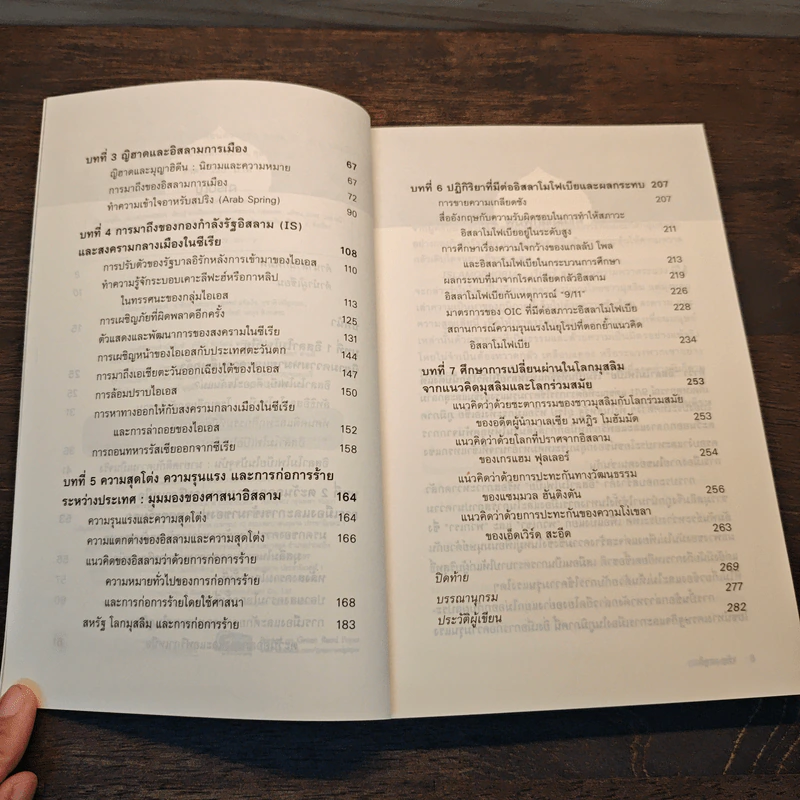 บทที่ 3 ญิฮาดและอิสลามการเมือง 67
ญิฮาดและมุญาฮิดีน : นิยามและความหมาย 67
การมาถึงของอิสลามการเมือง 72
ทำความเข้าใจอาหรับสปริง (Arab Spring) 90
บทที่ 4 การมาถึงของกองกำลังรัฐอิสลาม (IS)
และสงครามกลางเมืองในซีเรีย 108
การปรับตัวของรัฐบาลอิรักหลังการเข้ามาของไอเอส 110
ทำความรู้จักระบอบเคาะลีฟะฮ์หรือกาหลิบ
ในทรรศนะของกลุ่มไอเอส 113
การเผชิญภัยที่ผิดพลาดอีกครั้ง 125
ตัวแสดงและพัฒนาการของสงครามในซีเรีย 131
การเผชิญหน้าของไอเอสกับประเทศตะวันตก 144
การมาถึงเอเชียตะวันออกเฉียงใต้ของไอเอส 147
การล้อมปราบไอเอส 150
การหาทางออกให้กับสงครามกลางเมืองในซีเรีย
และการล่าถอยของไอเอส 152
การถอนทหารรัสเซียออกจากซีเรีย 158
บทที่ 5 ความสุดโต่ง ความรุนแรง และการก่อการร้าย
ระหว่างประเทศ : มุมมองของศาสนาอิสลาม 164
ความรุนแรงและความสุดโต่ง 164
ความแตกต่างของอิสลามและความสุดโต่ง 166
แนวคิดของอิสลามว่าด้วยการก่อการร้าย
ความหมายทั่วไปของการก่อการร้าย
และการก่อการร้ายโดยใช้ศาสนา 168
สหรัฐ โลกมุสลิม และการก่อการร้าย 183
บทที่ 6 ปฏิกิริยาที่มีต่ออิสลาโมโฟเบียและผลกระทบ 207
การขายความเกลียดชัง 207
สื่ออังกฤษกับความรับผิดชอบในการทำให้สภาวะ
อิสลาโมโฟเบียอยู่ในระดับสูง 211
การศึกษาเรื่องความใจกว้างของแกลลัป โพล
และอิสลาโมโฟเบียในกระบวนการศึกษา 213
ผลกระทบที่มาจากโรคเกลียดกลัวอิสลาม 219
อิสลาโมโฟเบียกับเหตุการณ์ "9/11" 226
มาตรการของ OIC ที่มีต่อสภาวะอิสลาโมโฟเบีย 228
สถานการณ์ความรุนแรงในยุโรปที่ตอกย้ำแนวคิด
อิสลาโมโฟเบีย 234
บทที่ 7 ศึกษาการเปลี่ยนผ่านในโลกมุสลิม
จากแนวคิดมุสลิมและโลกร่วมสมัย 253
แนวคิดว่าด้วยชะตากรรมของชาวมุสลิมกับโลกร่วมสมัย
ของอดีตผู้นำมาเลเซีย มหฎิร โมฮัมมัด 253
แนวคิดว่าด้วยโลกที่ปราศจากอิสลาม
ของเกรแฮม ฟุลเลอร์ 254
แนวคิดว่าด้วยการปะทะกันทางวัฒนธรรม
ของแซมมวล ฮันติงตัน 256
แนวคิดว่าด้วยการปะทะกันของความโง่เขลา
ของเอ็ดเวิร์ด สะอีด 263
ปิดท้าย 269
บรรณานุกรม 277
ประวัติผู้เขียน 282